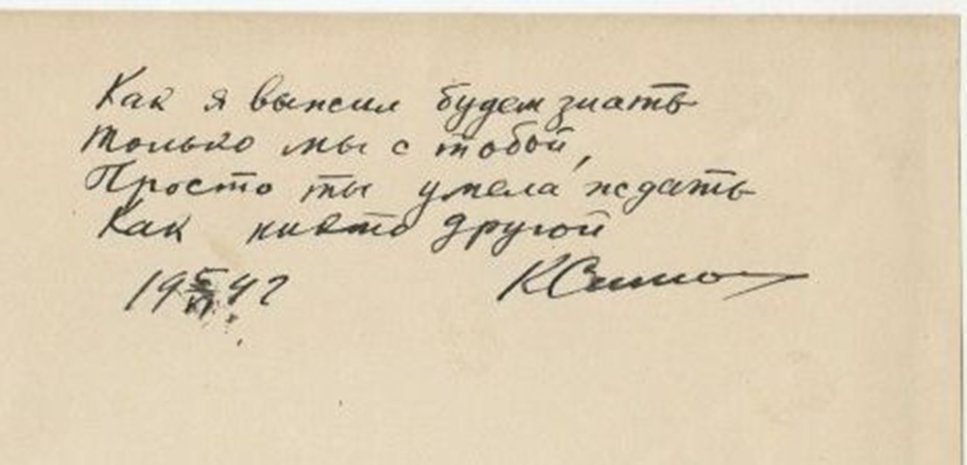 Как я выжил будем знать
только мы с тобой,
Просто ты умела ждать
Как никто другой
19 5/VI 42 КСимо